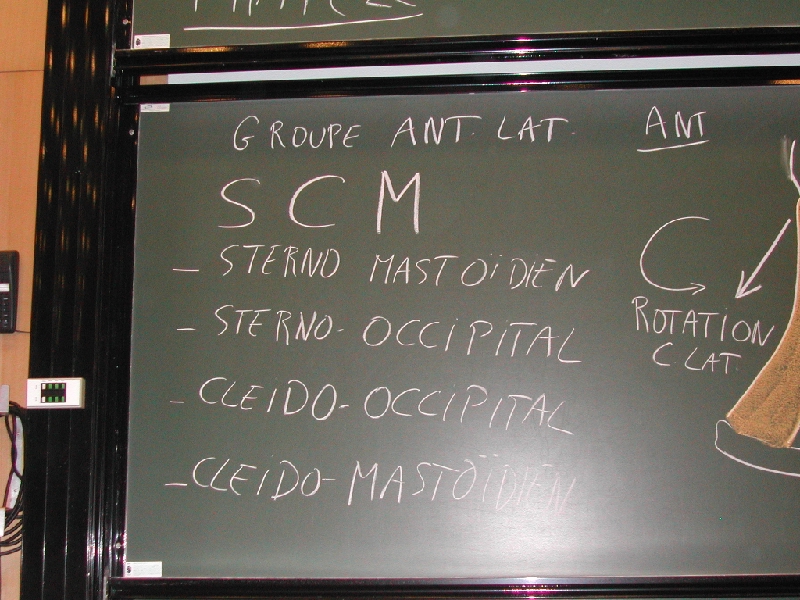 GROUPE ANT. LAT.
SCM
- STERNO MASTOÏDIEN
- STERNO-OCCIPITAL
- CLEIDO-OCCIPITAL
- CLEIDO-MASTOÏDIEN
ANT
ROTATION
C LAT.